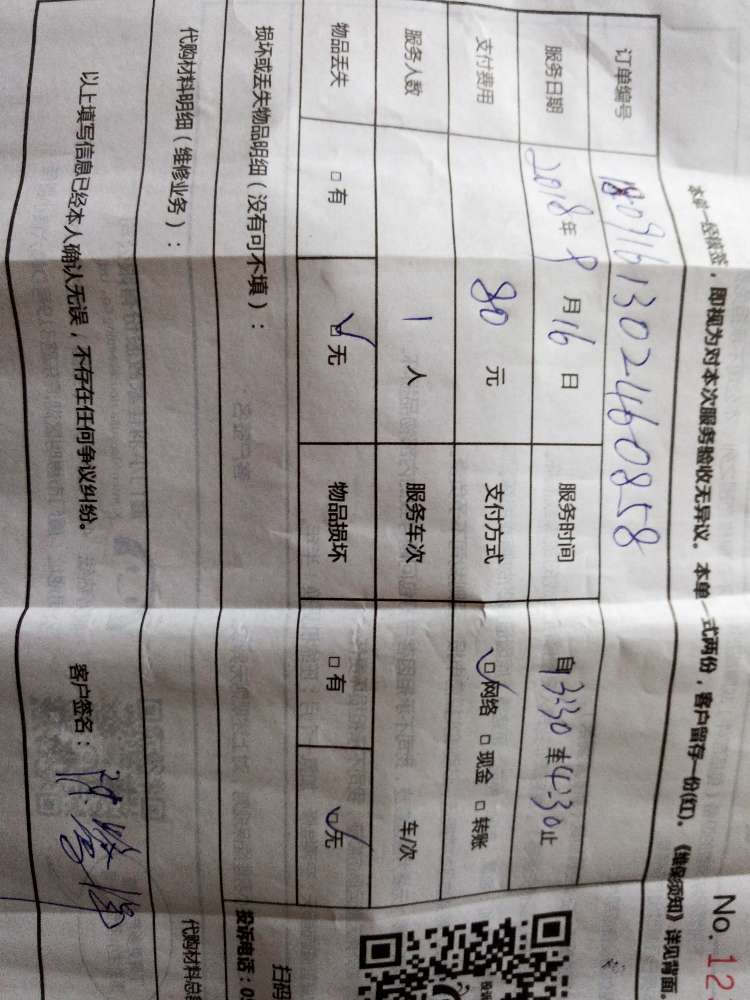 No. 12
本单一经接签，即视为对本次服务验收无异议。本单一式两份，客户留存一份(红)。《维保须知》详见背面
订单编号 1809161302460858
服务日期 2018年9月16日 服务时间 自13:30至14:30止
支付费用 80元 支付方式 ☑网络 □现金 □转账
服务人数 1人 服务车次 车/次
物品丢失 □有 ☑无 物品损坏 □有 ☑无
损坏或丢失物品明细（没有可不填）：
扫码
投诉电话：0
代购材料明细（维修业务）：
代购材料总
以上填写信息已经本人确认无误，不存在任何争议纠纷。 客户签名：